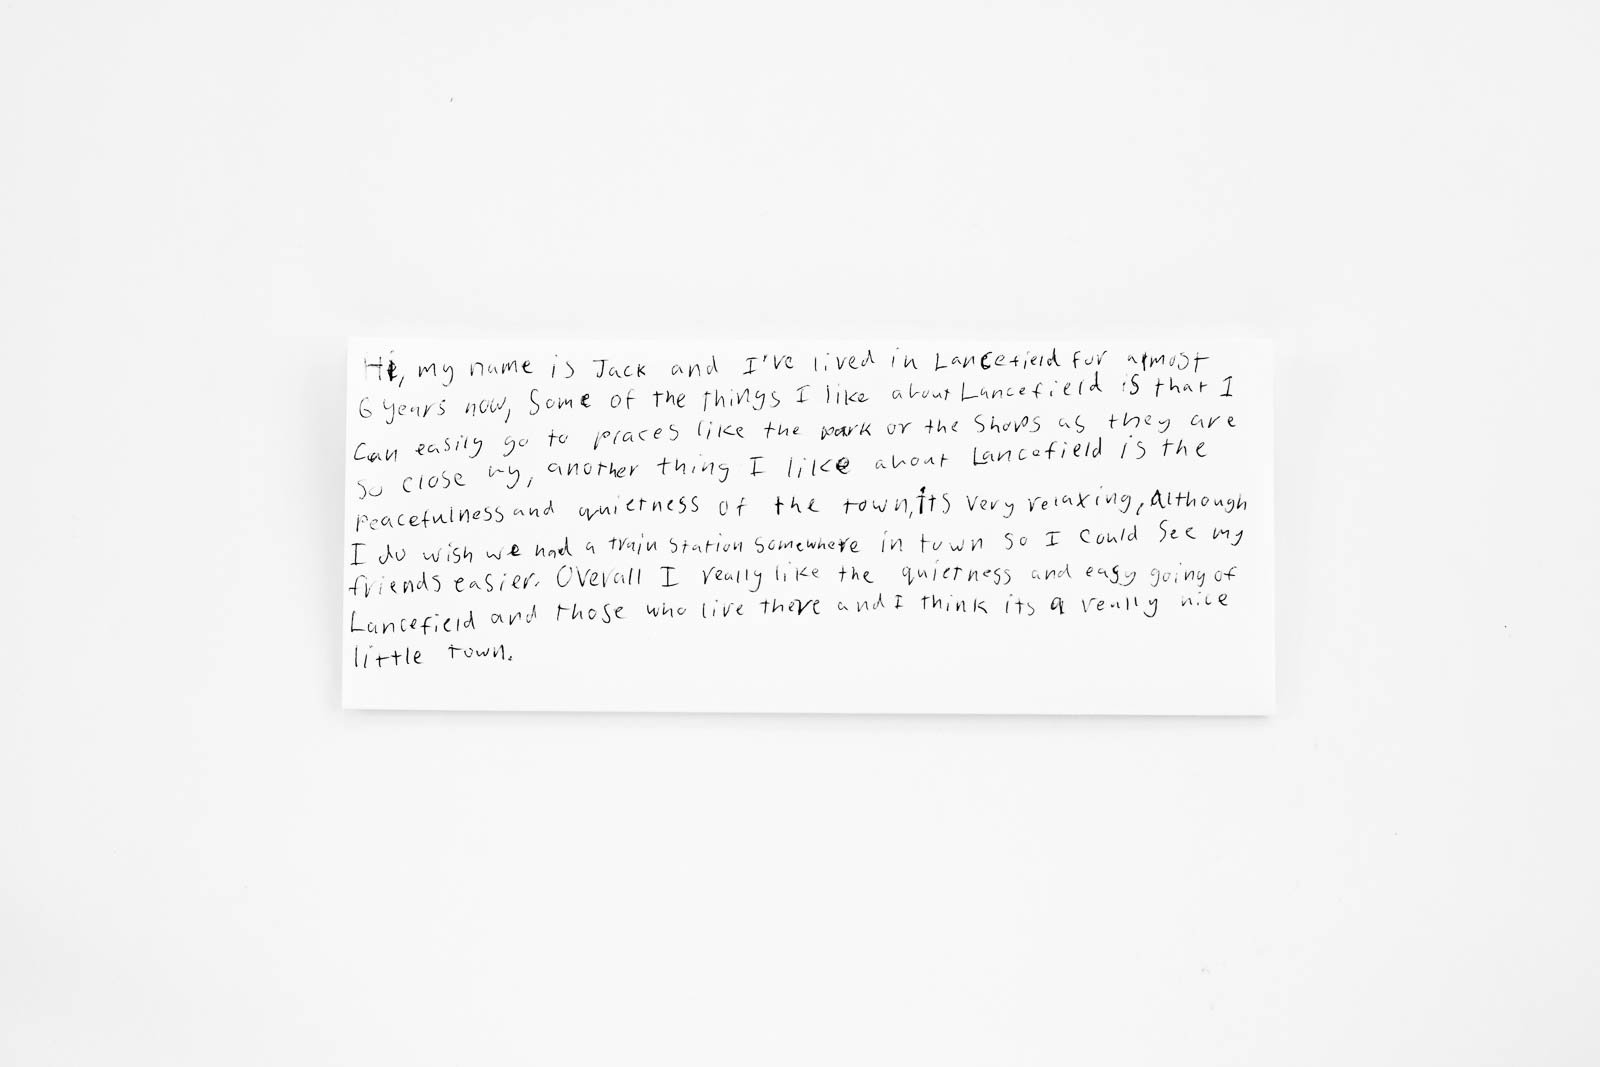 Hi, my name is Jack and I've lived in Lancefield for almost
6 years now, Some of the things I like about Lancefield is that I
Can easily go to places like the park or the Shops as they are
So close by, another thing I like about Lancefield is the
peacefulness and quietness of the town, its very relaxing, Although
I do wish we had a train Station Somewhere in town So I Could See my
friends easier. Overall I really like the quietness and easy going of
Lancefield and those who live there and I think its a really nice
little town.